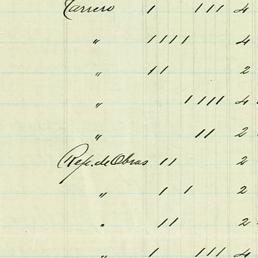 Carrero 1 111 4
" 1111 4
" 11 2
" 1111 4
" 11 2
Rep. de Obras 11 2
" 1 1 2
" 11 2
" 1 111 4